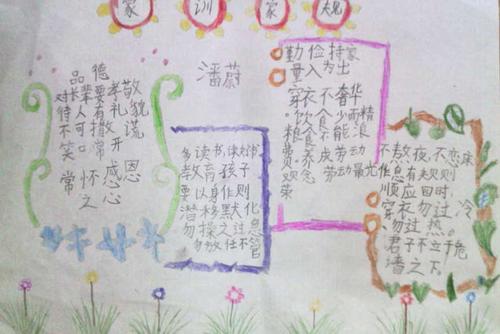 家 训 家 规
品德
敬
孝
礼貌
对长辈要有
待人
不可撒谎
笑常开
常怀感恩之心
潘蔚
勤俭持家
量入为出
穿衣不奢华
饮食少而精
粮食不能浪
费
劳动
观念
劳动最光
荣
多读书,读
教育孩子
要以身作则
潜移默化
勿操之过急
勿放任不管
不熬夜,不恋床
作息有规则
顺应天时,
穿衣勿过冷
勿过热。
君子不立于危
墙之下。